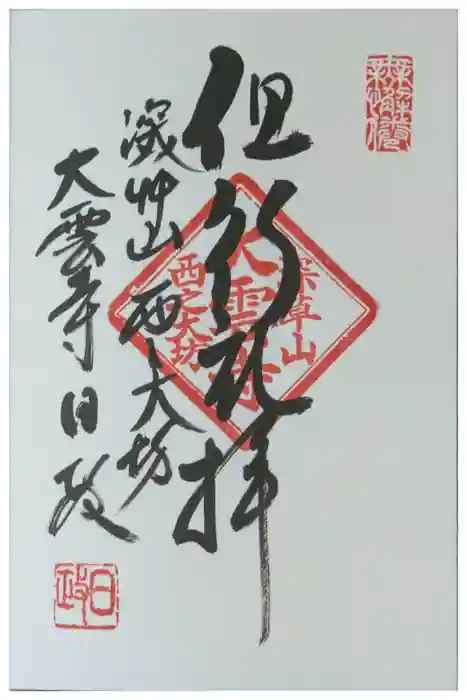 但行礼拝
深草山
大雲寺
西之大坊
深艸山 西大坊
大雲寺 日政
日政